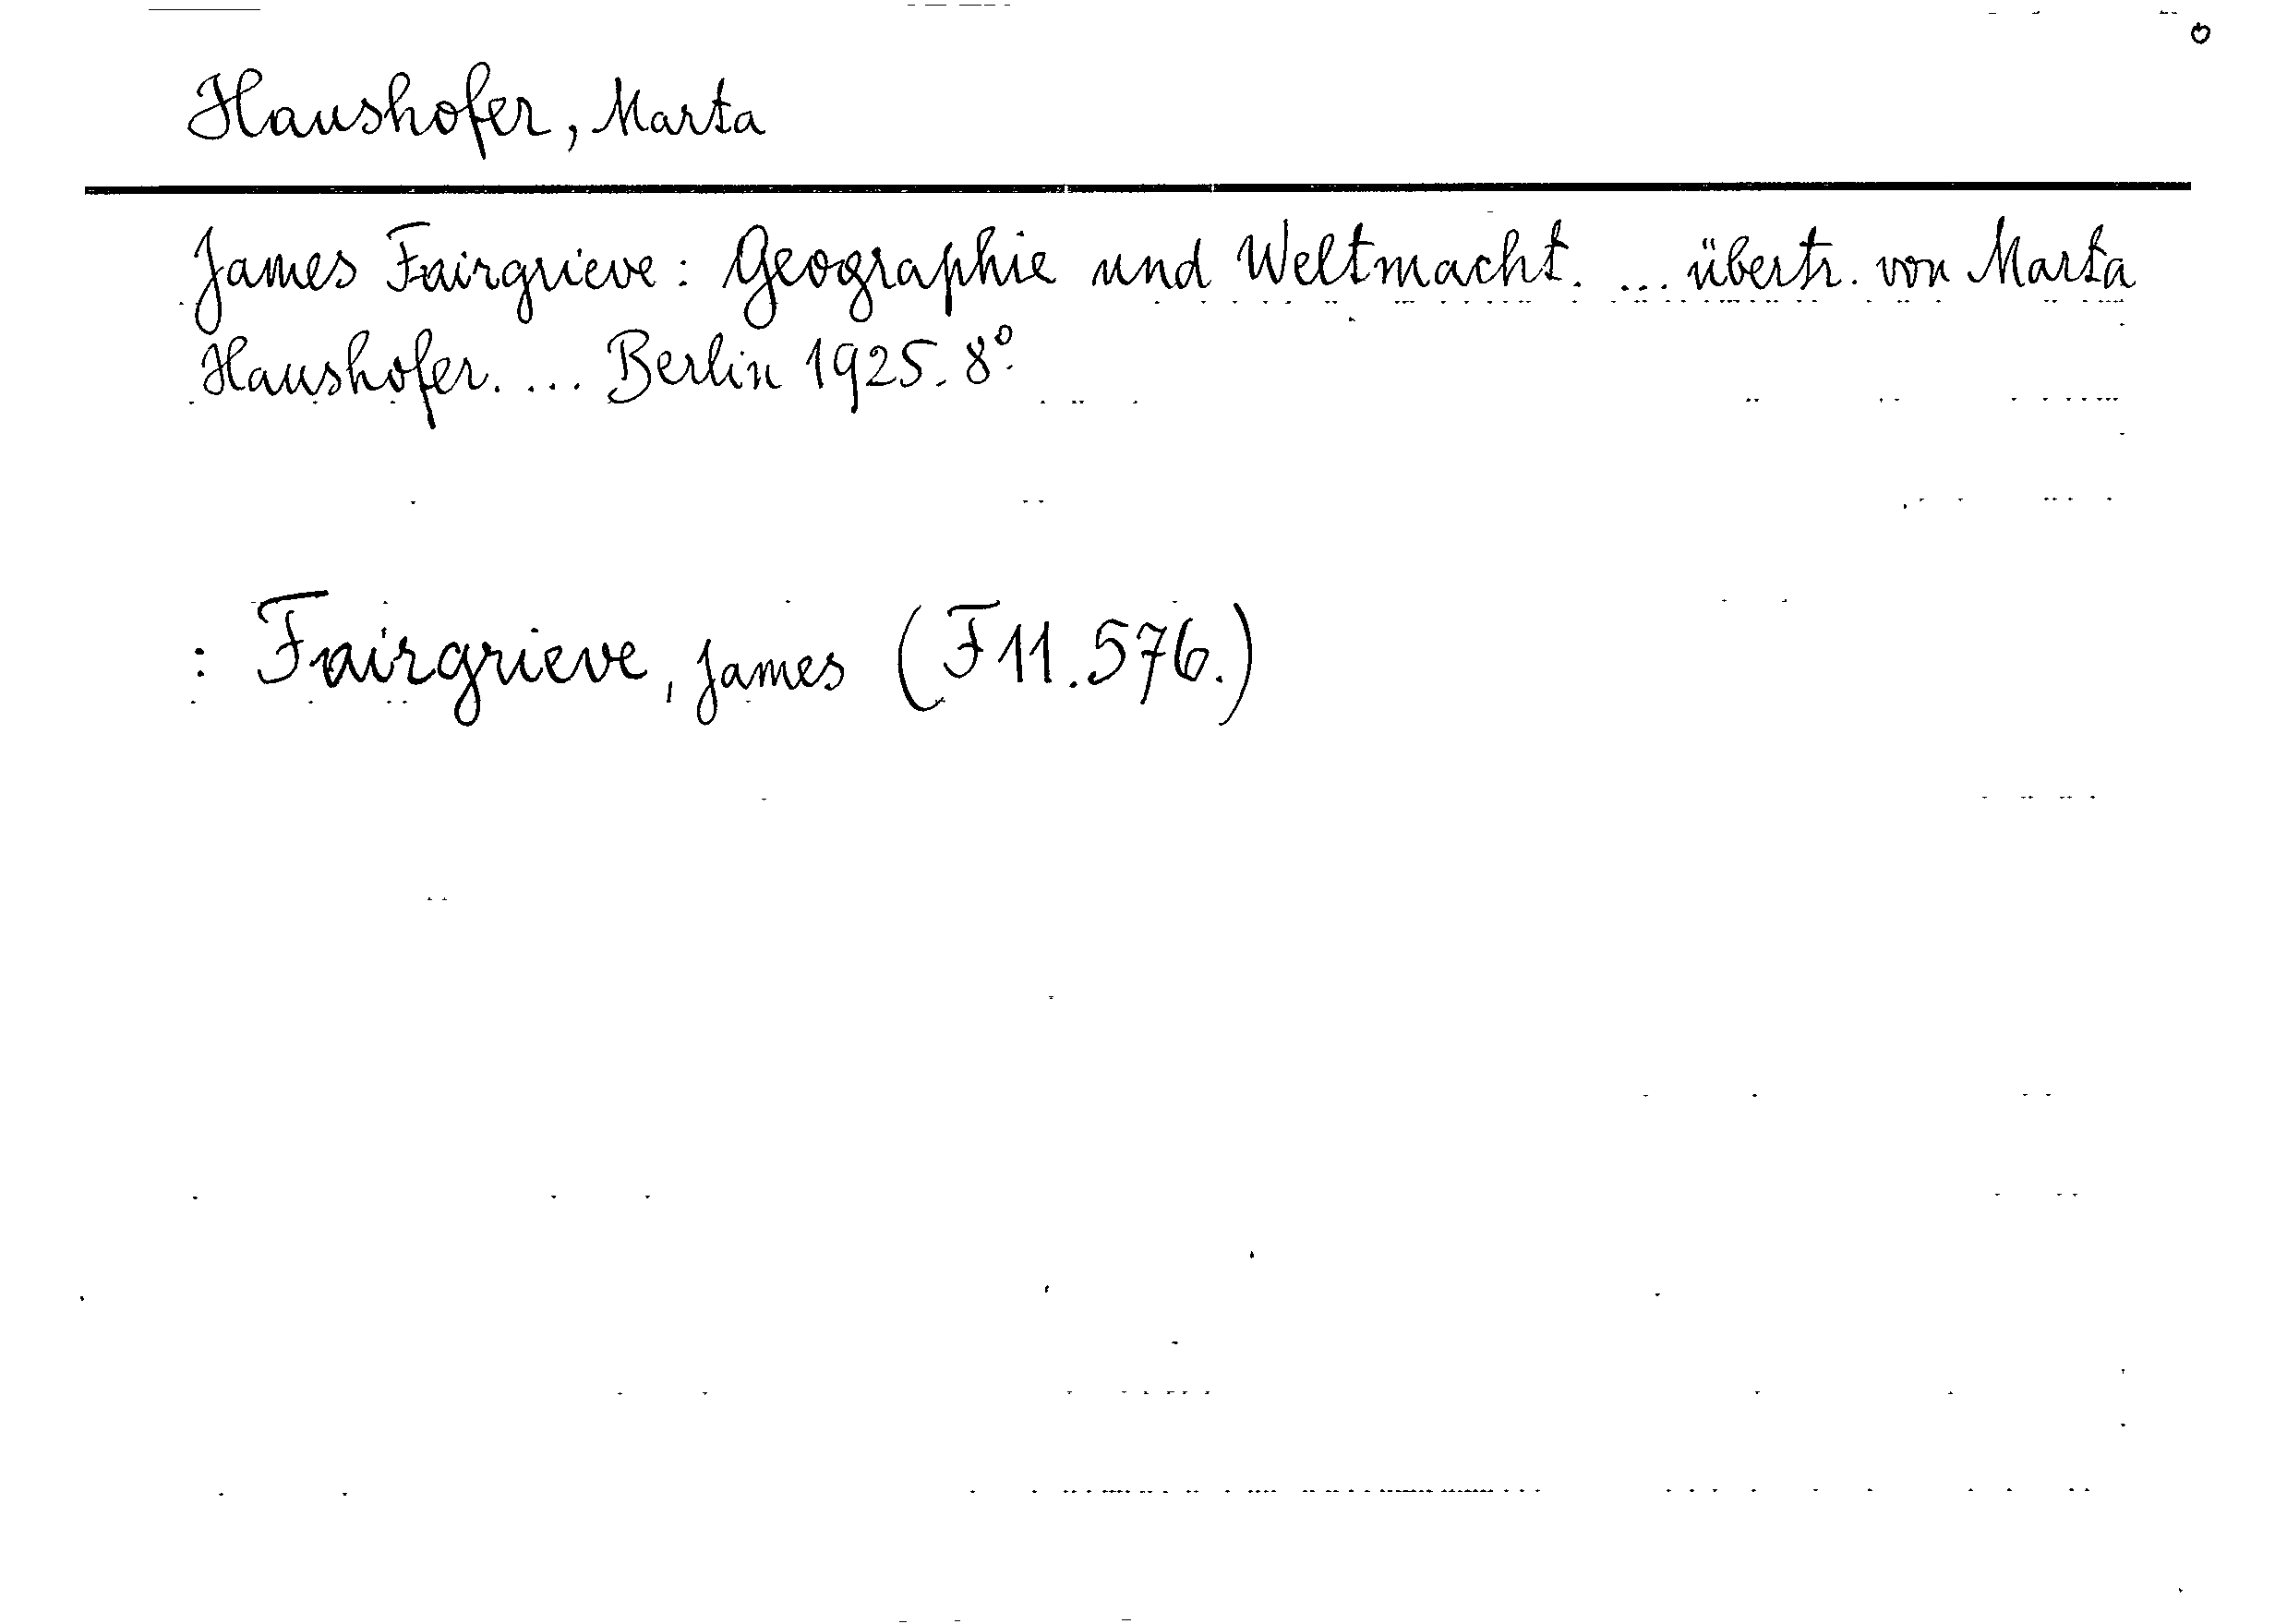 Haushofer, Marta
James Fairgrieve: Geographie und Weltmacht. ... übertr. von Marta
Haushofer. ... Berlin 1925. 8°.
: Fairgrieve, James (F 11.576.)